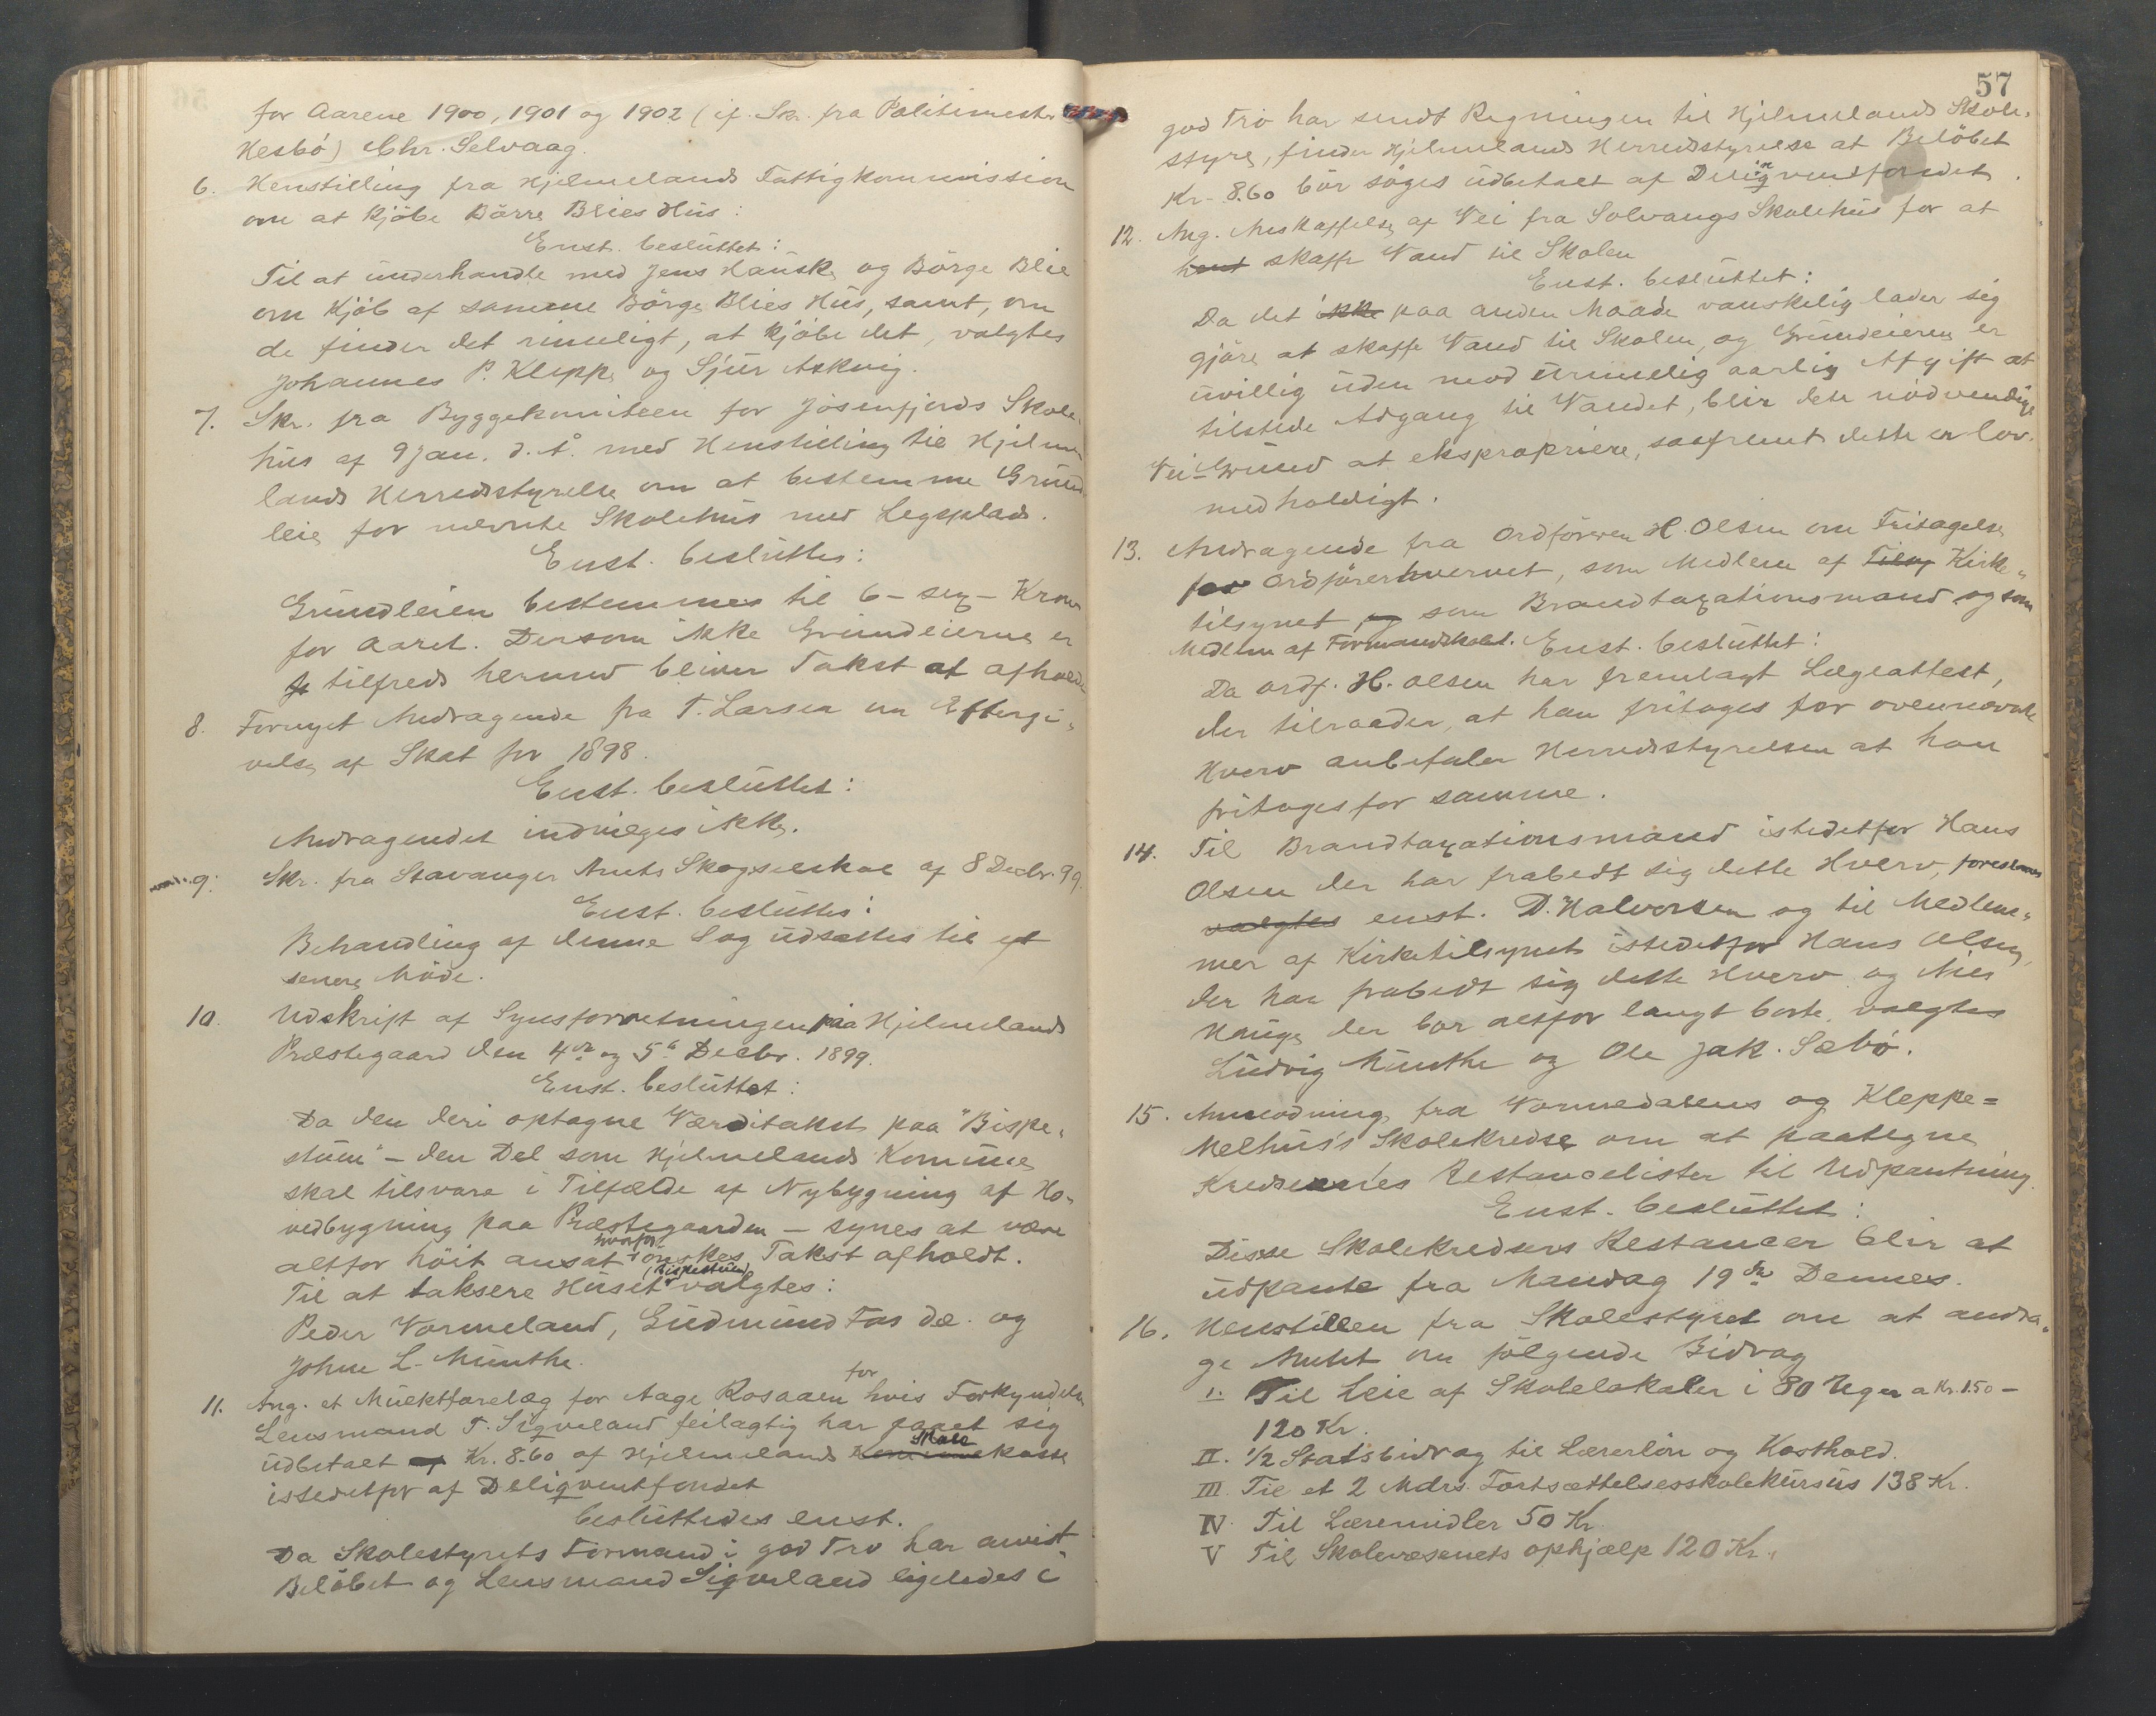 for Aarene 1900, 1901 og 1902 (if. Skr. fra Politimester
Hesbö) Chr. Selvaag.
6. Henstilling fra Hjelmelands Fattigkommission
om at kjöbe Börre Blies Hus:
Enst. besluttet:
Til at underhandle med Jens Hauske og Börge Blie
om Kjöb af samme Börge Blies Hus, samt, om
de finder det rimeligt, at kjöbe det, valgtes
Johannes P. Kleppe og Sjur Askvig.
7. Skr. fra Byggekomiteen for Jösenfjords Skole-
hus af 9 Jan. d. Å. med Henstilling til Hjelme-
lands Herredsstyrelse om at bestemme Grund-
leie for nævnte Skolehus med Legeplads.
Enst. besluttes:
Grundleien bestemmes til 6 - sex - Kroner
for Aaret. Dersom ikke Grundeierne er
tilfreds hermed bliver Takst at afholde
8. Fornyet Andragende fra T. Larsen om Eftergi-
velse af Skat for 1898.
Enst. besluttet:
Andragendet indvilges ikke.
9. Skr. fra Stavanger Amts Skogselskab af 8 Decbr. 99.
Enst. besluttes:
Behandling af denne Sag udsættes til et
senere Möde.
10. Udskrift af Synsforretningen paa Hjelmelands
Præstegaard den 4de og 5te Decbr. 1899.
Enst. besluttet:
Da den deri optagne Værditakst paa "Bispe-
stuen" - den Del som Hjelmelands Kommune
skal tilsvare i Tilfælde af Nybygning af Ho-
vedbygning paa Præstegaarden - synes at være
altfor höit ansat hvorfor önskes Takst afholdt.
Til at taksere Huset (Bispestuen) valgtes:
Peder Vormeland, Gudmund Fos do. og
Johne L. Munthe.
11. Ang. et Mulktforelæg for Aage Rosaaen for hvis Forkyndelse
Lensmand T. Sigveland feilagtig har faaet sig
udbetalt af Kr. 8.60 af Hjelmelands Kommunekasse Skole
istedetfor af Deliqventfondet
besluttedes enst.
Da Skolestyrets Formand i god Tro har anvist
Belöbet og Lensmand Sigveland ligeledes i
57
god Tro har sendt Regningen til Hjelmelands Skole-
styre, finder Hjelmelands Herredsstyrelse at Belöbet
Kr. 8.60 bör söges udbetalt af Deliqventfondet.
12. Ang. Anskaffelse af Vei fra Solvangs Skolehus for at
hent skaffe Vand til Skolen
Enst. besluttet:
Da det ikke paa anden Maade vanskelig lader sig
gjöre at skaffe Vand til Skolen, og Grundeieren er
uvillig uden mod urimelig aarlig Afgift at
tilstede Adgang til Vandet, blir dete nödvendige
Vei-Grund at ekspropriere, saafremt dette er lov-
medholdigt.
13. Andragende fra Ordföreren H. Olsen om Fritagelse
for Ordförerhvervet, som Medlem af Tilsy Kirke-
tilsynet, og som Brandtaxationsmand og som
Medlem af Formandskabet. Enst. besluttet:
Da Ordf. H. Olsen har fremlagt Lægeattest,
der tilraader, at han fritages for ovennævnte
Hverv anbefaler Herredsstyrelsen at han
fritages for samme.
14. Til Brandtaxationsmand istedetfor Hans
Olsen der har frabedt sig dette Hverv, foreslaaes
valgtes enst. D. Halvorsen og til Medlem-
mer af Kirketilsynet istedetfor Hans Olsen,
der har frabedt sig dette Hverv og Nils
Hauge der bor altfor langt borte, valgtes
Ludvig Munthe og Ole Jak. Sæbö.
15. Anmodning fra Vormedalens og Kleppe=
Melhus's Skolekredse om at paategne
Kredsenes Restancelister til Udpantning.
Enst. besluttet:
Disse Skolekredsers Restancer blir at
udpante fra Mandag 19de Dennes.
16. Henstillen fra Skolestyret om at andra-
ge Amtet om fölgende Bidrag
I. Til Leie af Skolelokaler i 80 Uger a Kr. 1.50 -
120 Kr.
II. 1/2 Statsbidrag til Lærerlön og Kosthold.
III. Til et 2 Mdrs. Fortsættelsesskolekursus 138 Kr.
IV. Til Læremidler 50 Kr.
V Til Skolevæsenets ophjælp 120 Kr.